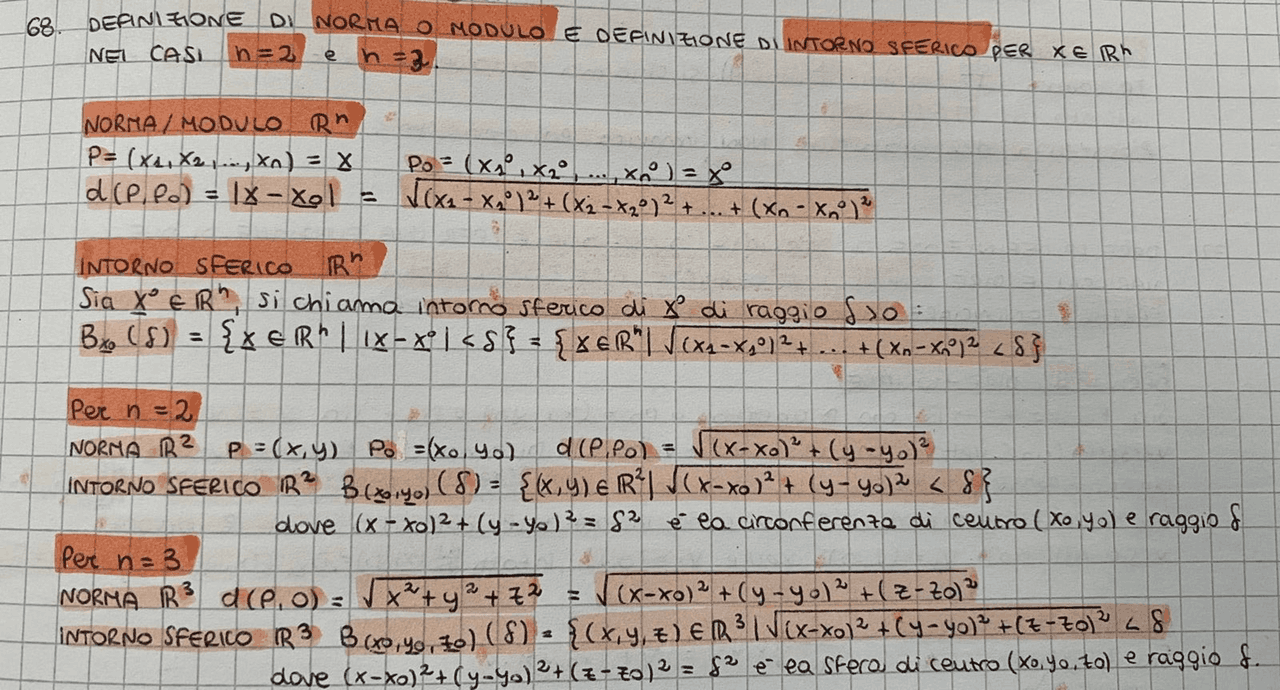 68. DEFINIZIONE DI NORMA O MODULO E DEFINIZIONE DI INTORNO SFERICO PER X ∈ ℝⁿ
NEI CASI n=2 e n=3.
NORMA/MODULO ℝⁿ
P = (x₁, x₂, ..., xₙ) = x̲ P₀ = (x₁⁰, x₂⁰, ..., xₙ⁰) = x̲⁰
d(P,P₀) = |x̲ - x̲₀| = √((x₁ - x₁⁰)² + (x₂ - x₂⁰)² + ... + (xₙ - xₙ⁰)²)
INTORNO SFERICO ℝⁿ
Sia x̲⁰ ∈ ℝⁿ, si chiama intorno sferico di x̲⁰ di raggio δ>0 :
B x̲₀ (δ) = {x̲ ∈ ℝⁿ | |x̲ - x̲⁰| < δ} = {x̲ ∈ ℝⁿ | √((x₁ - x₁⁰)² + ... + (xₙ - xₙ⁰)²) < δ}
Per n = 2
NORMA ℝ² P = (x,y) P₀ = (x₀,y₀) d(P,P₀) = √((x-x₀)² + (y-y₀)²)
INTORNO SFERICO ℝ² B(x₀,y₀) (δ) = {(x,y) ∈ ℝ² | √((x-x₀)² + (y-y₀)²) < δ}
dove (x-x₀)² + (y-y₀)² = δ² è la circonferenza di centro (x₀,y₀) e raggio δ
Per n = 3
NORMA ℝ³ d(P,O) = √(x² + y² + z²) = √((x-x₀)² + (y-y₀)² + (z-z₀)²)
INTORNO SFERICO ℝ³ B(x₀,y₀,z₀) (δ) = {(x,y,z) ∈ ℝ³ | √((x-x₀)² + (y-y₀)² + (z-z₀)²) < δ
dove (x-x₀)² + (y-y₀)² + (z-z₀)² = δ² è la sfera di centro (x₀,y₀,z₀) e raggio δ.